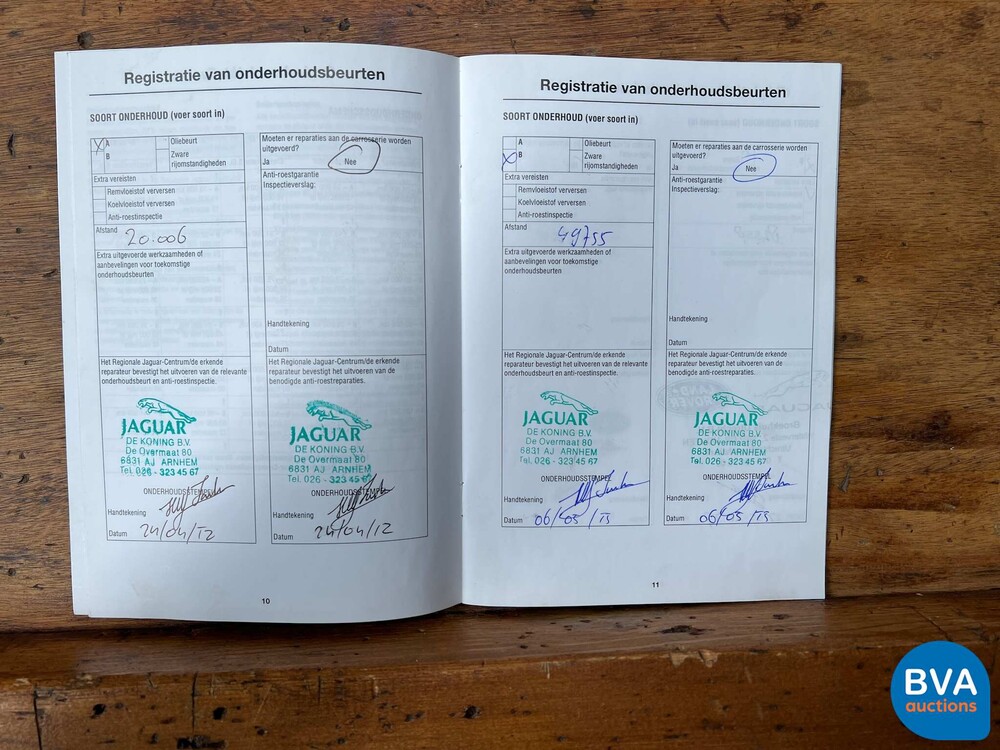 Registratie van onderhoudsbeurten
SOORT ONDERHOUD (voer soort in)
X A
B
Oliebeurt
Zware
rijomstandigheden
Extra vereisten
Remvloeistof verversen
Koelvloeistof verversen
Anti-roestinspectie
Afstand 20.006
Extra uitgevoerde werkzaamheden of
aanbevelingen voor toekomstige
onderhoudsbeurten
Het Regionale Jaguar-Centrum/de erkende
reparateur bevestigt het uitvoeren van de relevante
onderhoudsbeurt en anti-roestinspectie.
JAGUAR
DE KONING B.V.
De Overmaat 80
6831 AJ ARNHEM
Tel. 026 - 323 45 67
ONDERHOUDSSTEMPEL
Handtekening
Datum 24/04/12
Moeten er reparaties aan de carrosserie worden
uitgevoerd?
Ja Nee
Anti-roestgarantie
Inspectieverslag:
Handtekening
Datum
Het Regionale Jaguar-Centrum/de erkende
reparateur bevestigt het uitvoeren van de
benodigde anti-roestreparaties.
JAGUAR
DE KONING B.V.
De Overmaat 80
6831 AJ ARNHEM
Tel. 026 - 323 45 67
ONDERHOUDSSTEMPEL
Handtekening
Datum 24/04/12
10
Registratie van onderhoudsbeurten
SOORT ONDERHOUD (voer soort in)
A
X B
Oliebeurt
Zware
rijomstandigheden
Extra vereisten
Remvloeistof verversen
Koelvloeistof verversen
Anti-roestinspectie
Afstand 49755
Extra uitgevoerde werkzaamheden of
aanbevelingen voor toekomstige
onderhoudsbeurten
Het Regionale Jaguar-Centrum/de erkende
reparateur bevestigt het uitvoeren van de relevante
onderhoudsbeurt en anti-roestinspectie.
JAGUAR
DE KONING B.V.
De Overmaat 80
6831 AJ ARNHEM
Tel. 026 - 323 45 67
ONDERHOUDSSTEMPEL
Handtekening
Datum 06/05/13
Moeten er reparaties aan de carrosserie worden
uitgevoerd?
Ja Nee
Anti-roestgarantie
Inspectieverslag:
Handtekening
Datum
Het Regionale Jaguar-Centrum/de erkende
reparateur bevestigt het uitvoeren van de
benodigde anti-roestreparaties.
JAGUAR
DE KONING B.V.
De Overmaat 80
6831 AJ ARNHEM
Tel. 026 - 323 45 67
ONDERHOUDSSTEMPEL
Handtekening
Datum 06/05/13
11
BVA
auctions